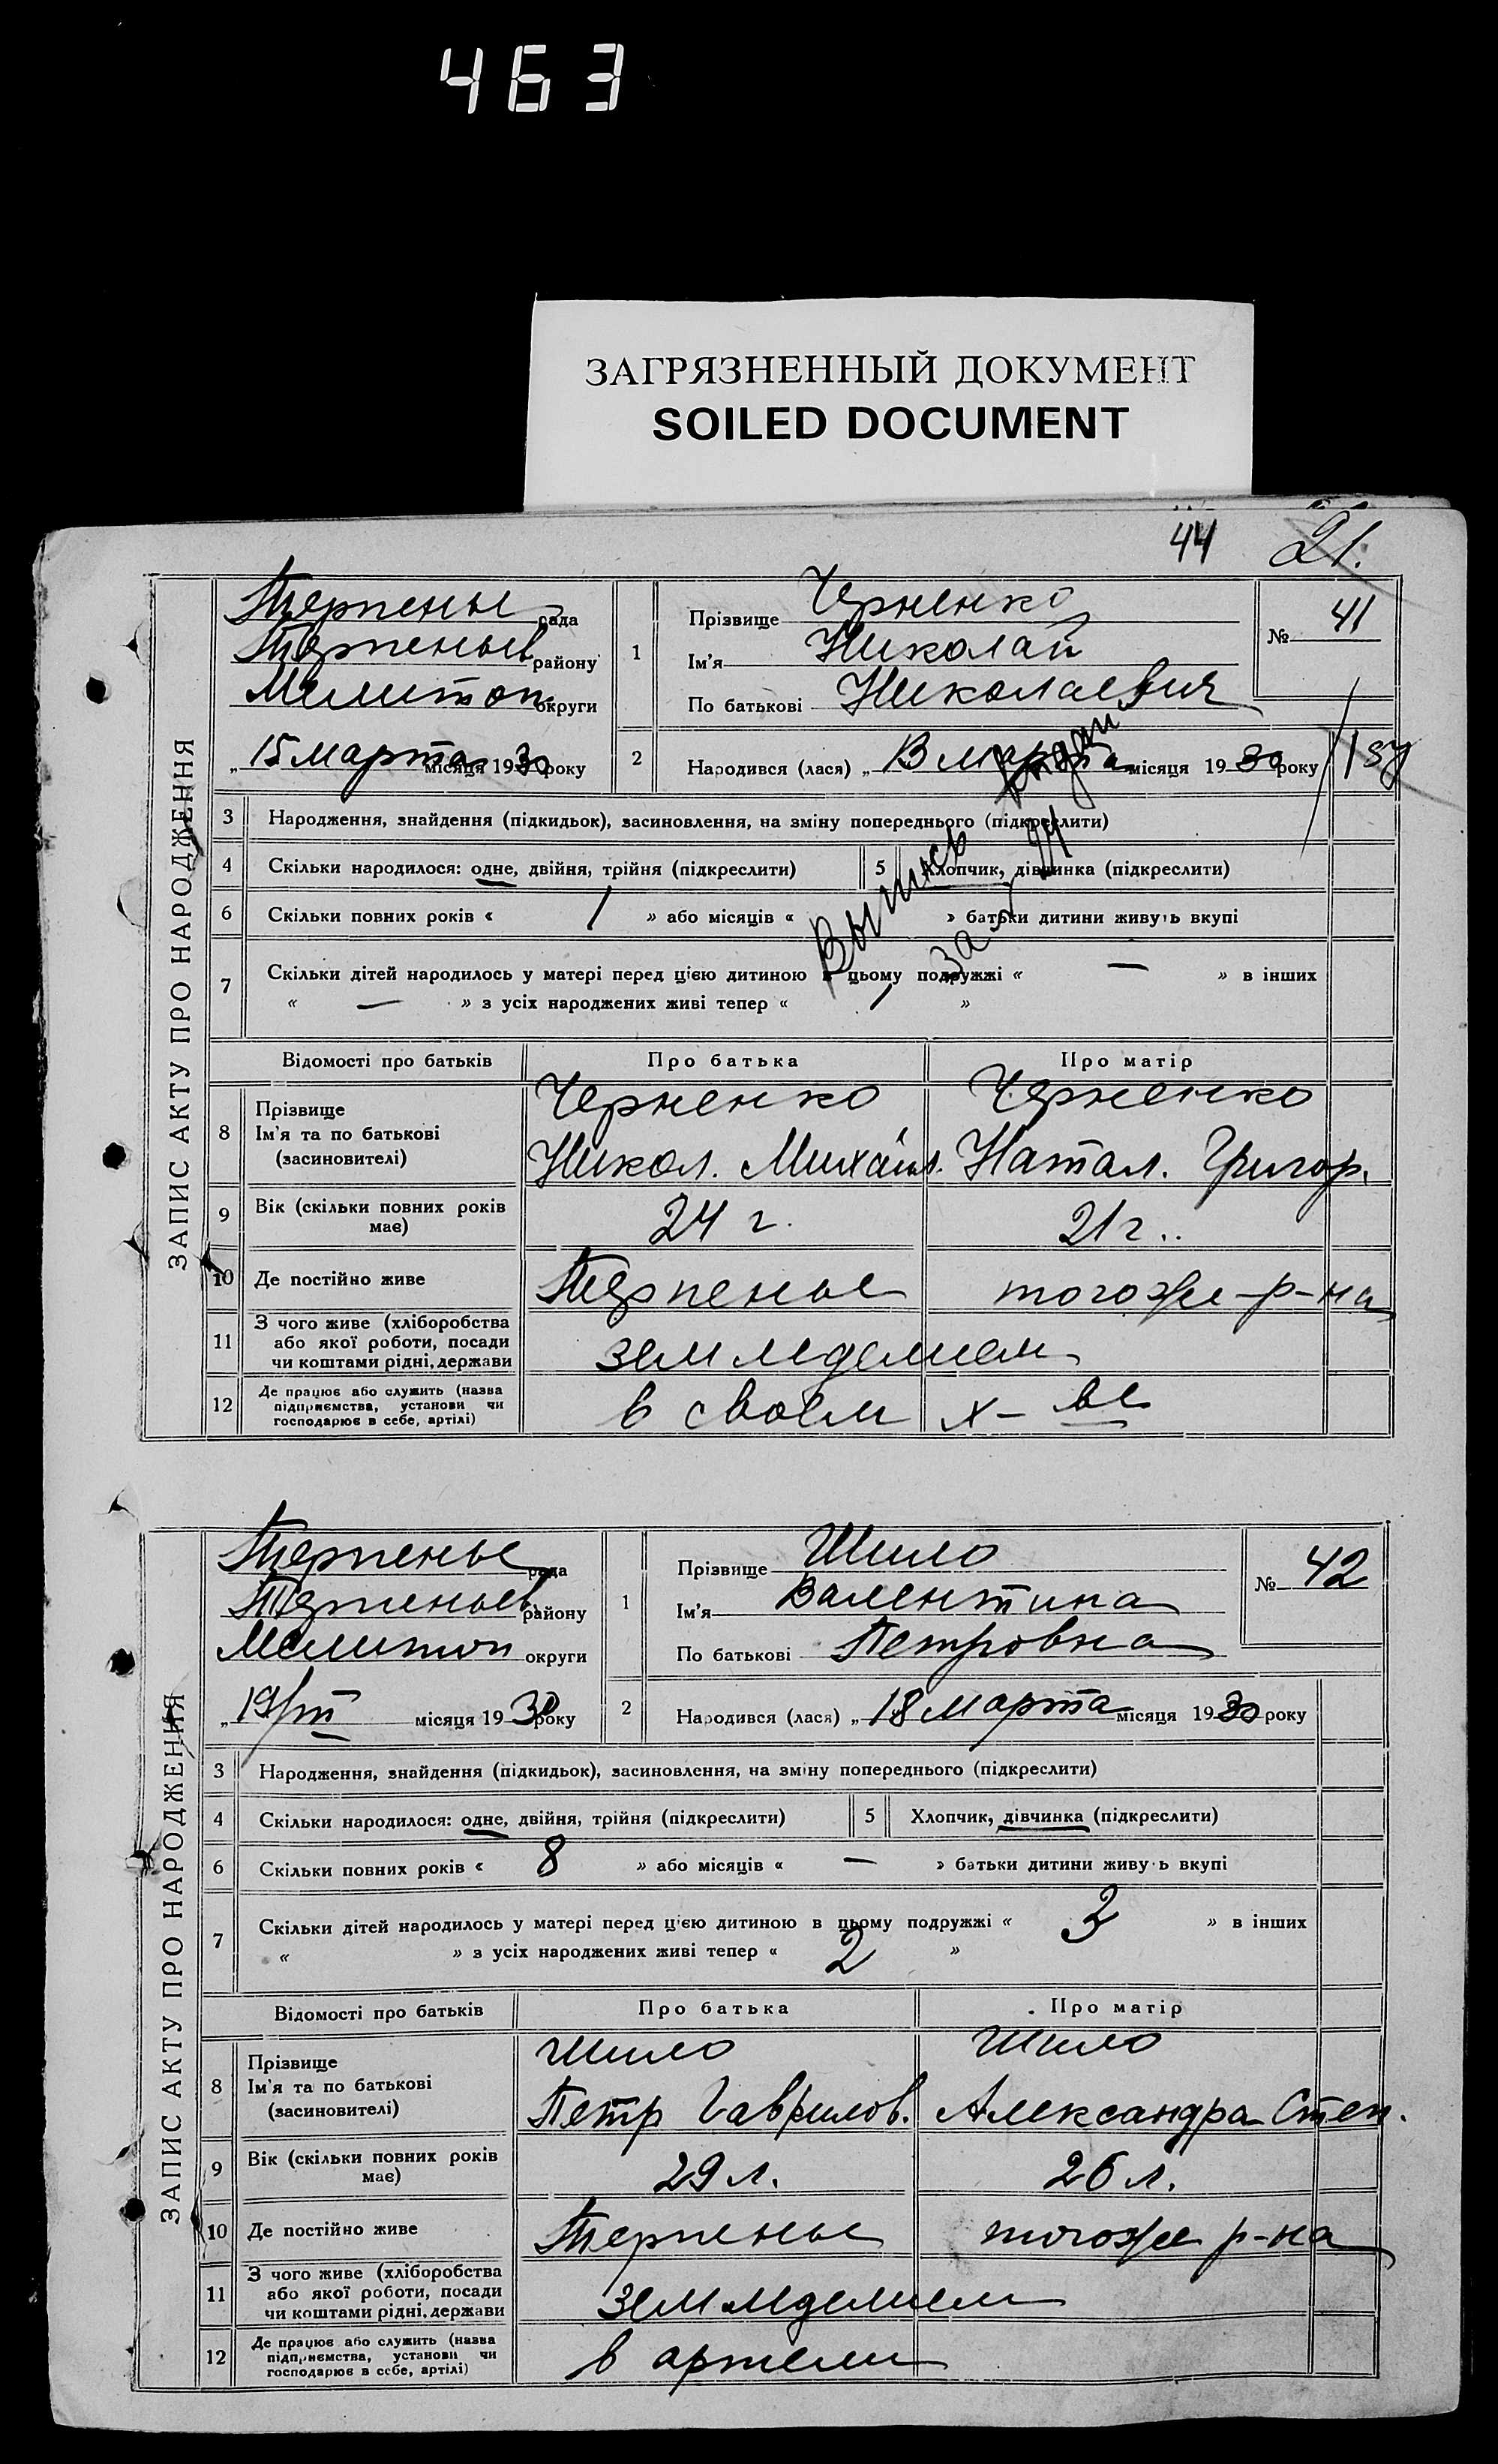 463
ЗАГРЯЗНЕННЫЙ ДОКУМЕНТ
SOILED DOCUMENT
44 21.
ЗАПИС АКТУ ПРО НАРОДЖЕННЯ
Терпенье рада
Терпеньев району
Мелитоп округи
„ 15 марта місяця 1930 року
1 Прізвище Черненко
Ім'я Николай
По батькові Николаевич
№ 41
2 Народився (лася) „ 13 марта місяця 1930 року
3 Народження, знайдення (підкидьок), засиновлення, на зміну попереднього (підкреслити)
4 Скільки народилося: одне, двійня, трійня (підкреслити) 5 Хлопчик, дівчинка (підкреслити)
6 Скільки повних років « 1 » або місяців « » батьки дитини живуть вкупі
7 Скільки дітей народилось у матері перед цією дитиною в цьому подружжі « — » в інших
« — » з усіх народжених живі тепер « 1 »
Выпись
за 24
Відомості про батьків Про батька Про матір
8 Прізвище Черненко Черненко
Ім'я та по батькові Никол. Михайл. Натал. Григор.
(засиновителі)
9 Вік (скільки повних років має) 24 г. 21 г..
10 Де постійно живе Терпенье того же р-на
11 З чого живе (хліборобства
або якої роботи, посади земледелием
чи коштами рідні, держави
12 Де працює або служить (назва
підприємства, установи чи в своем х-ве
господарює в себе, артілі)
ЗАПИС АКТУ ПРО НАРОДЖЕННЯ
Терпенье рада
Терпеньев району
Мелитоп округи
„ 19/III місяця 1930 року
1 Прізвище Шило
Ім'я Валентина
По батькові Петровна
№ 42
2 Народився (лася) „ 18 марта місяця 1930 року
3 Народження, знайдення (підкидьок), засиновлення, на зміну попереднього (підкреслити)
4 Скільки народилося: одне, двійня, трійня (підкреслити) 5 Хлопчик, дівчинка (підкреслити)
6 Скільки повних років « 8 » або місяців « — » батьки дитини живуть вкупі
7 Скільки дітей народилось у матері перед цією дитиною в цьому подружжі « 3 » в інших
« » з усіх народжених живі тепер « 2 »
Відомості про батьків Про батька Про матір
8 Прізвище Шило Шило
Ім'я та по батькові Петр Гаврилов. Александра Степ.
(засиновителі)
9 Вік (скільки повних років має) 29 л. 26 л.
10 Де постійно живе Терпенье того же р-на
11 З чого живе (хліборобства
або якої роботи, посади земледелием
чи коштами рідні, держави
12 Де працює або служить (назва
підприємства, установи чи в артели
господарює в себе, артілі)